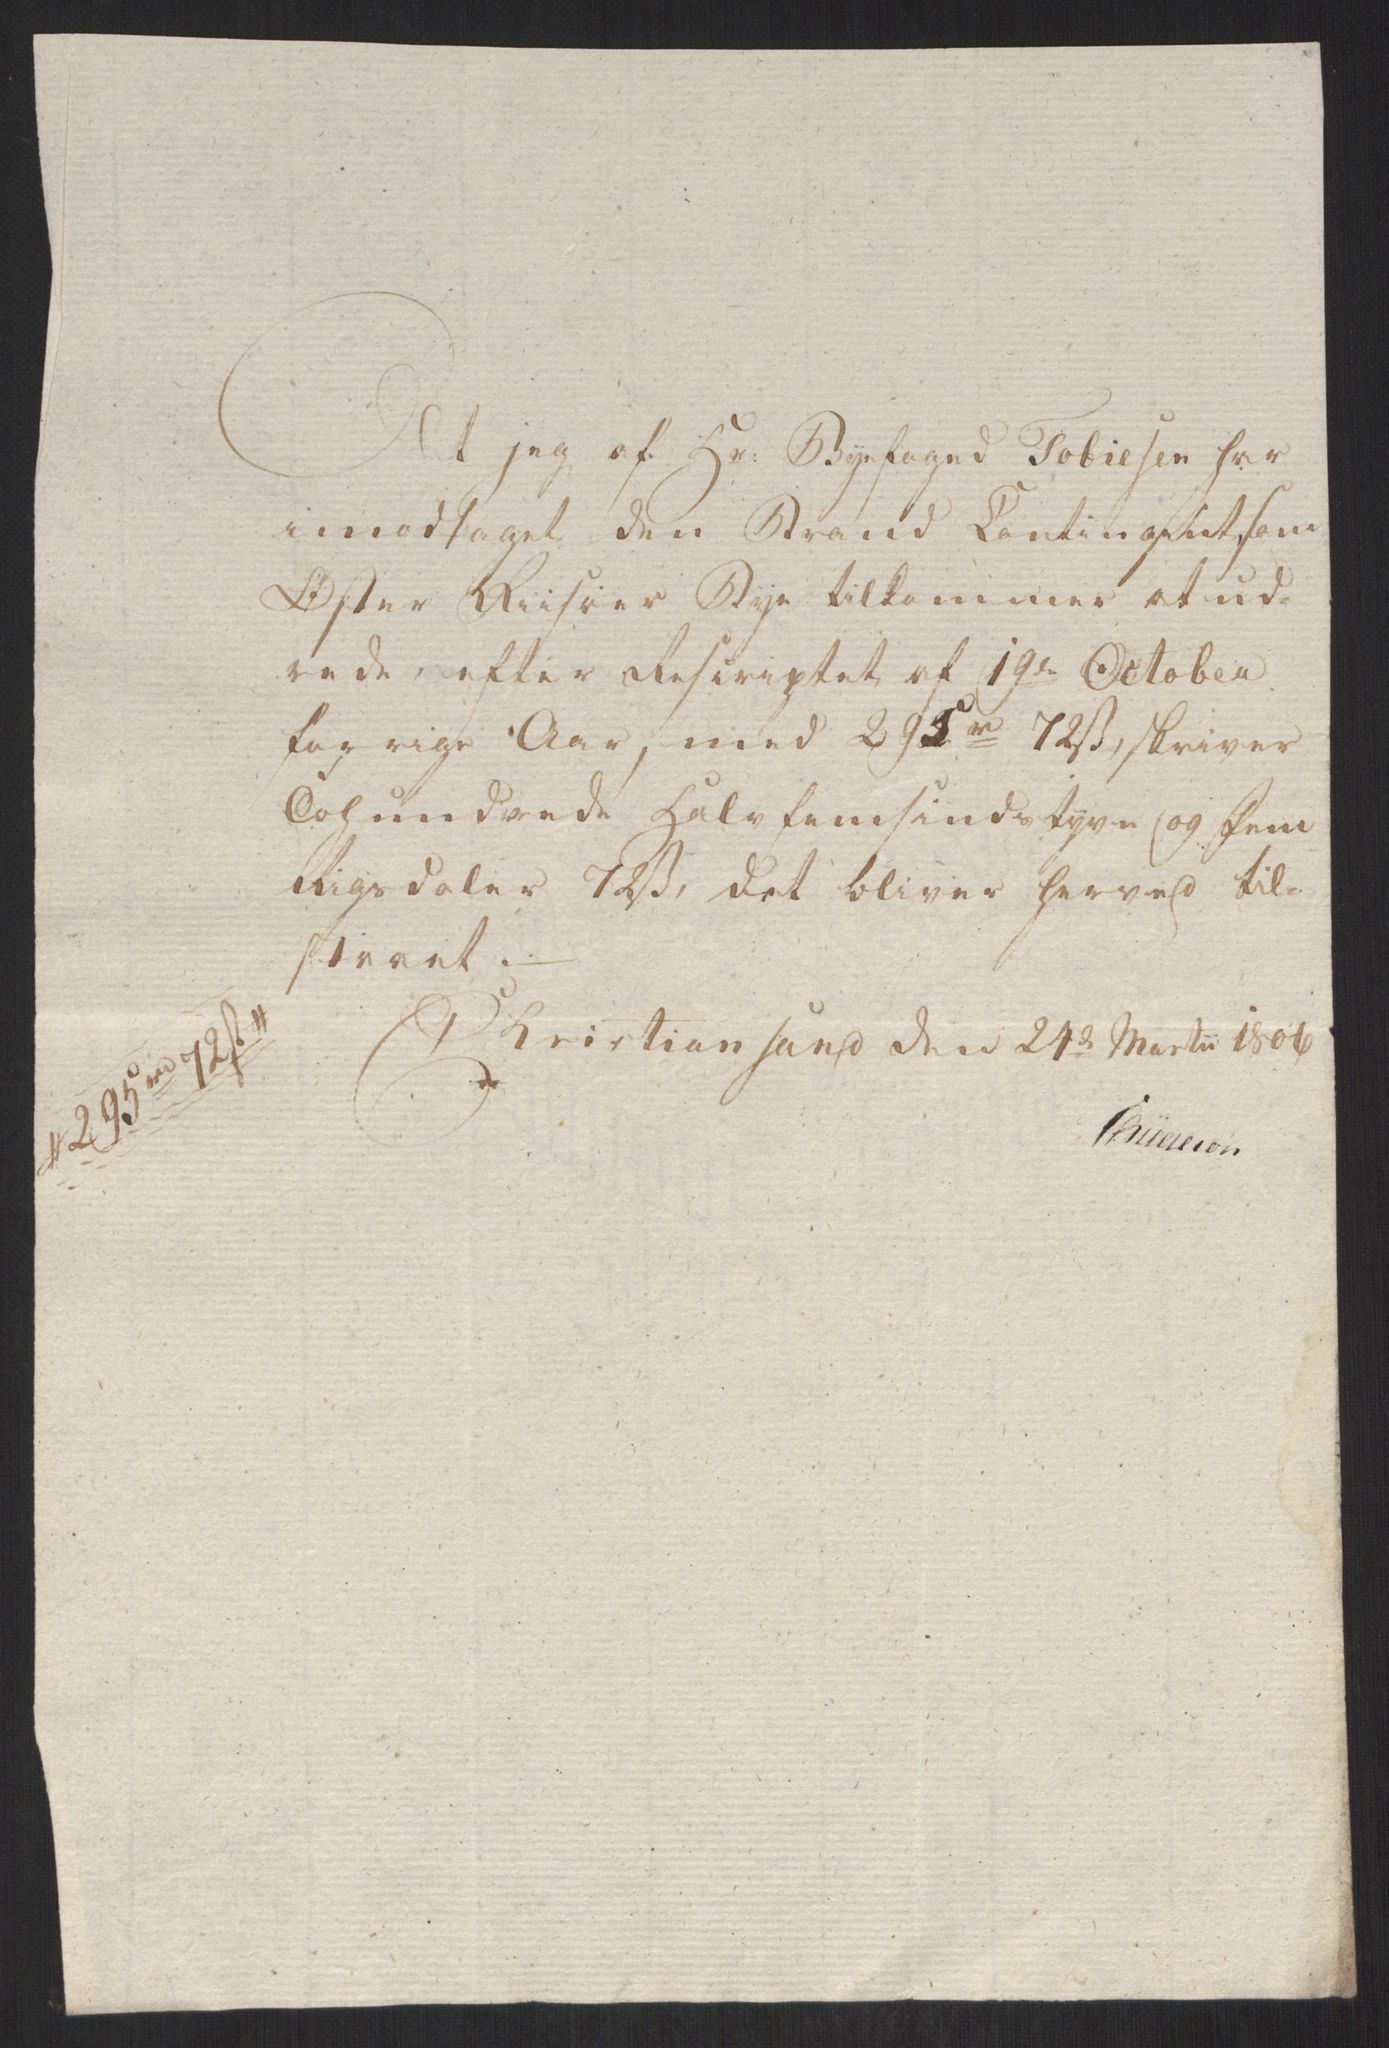 At jeg af Hr: Byefoged Tobiesen har
imodtaget den Brand Contingent, som
Øster Riisøer Bye tilkommer at ud-
rede, efter Rescriptet af 19de October
forrige Aar, med 295 rd 72 ß, skriver
Tohundrede Halvfemsindstyve og Fem
Rigsdaler 72 ß, det bliver herved til-
staaet.
Christiansand den 24de Martii 1806
# 295 rd 72 ß #